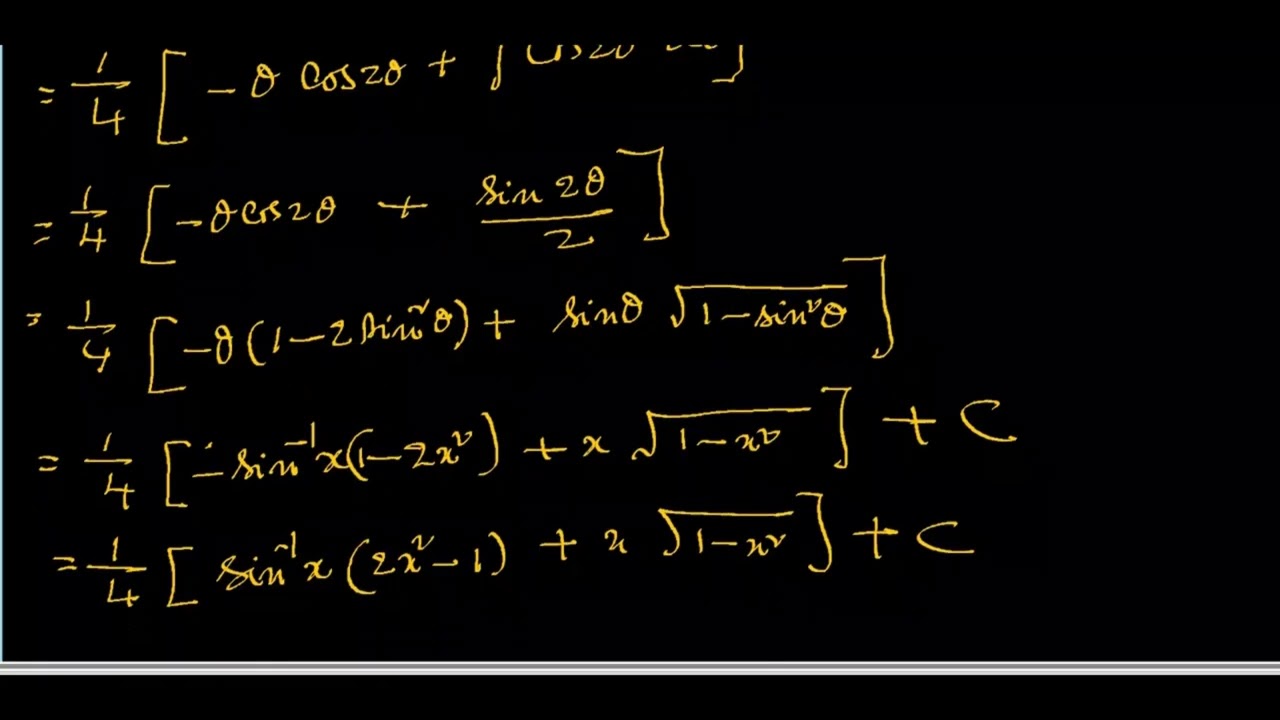 = 1/4 [ - θ cos2θ + ∫ cos2θ
= 1/4 [ -θ cos2θ + sin 2θ / 2 ]
= 1/4 [ -θ (1 - 2 sin²θ) + sinθ √(1 - sin²θ) ]
= 1/4 [ - sin⁻¹x (1 - 2x²) + x √(1 - x²) ] + C
= 1/4 [ sin⁻¹x (2x² - 1) + x √(1 - x²) ] + C